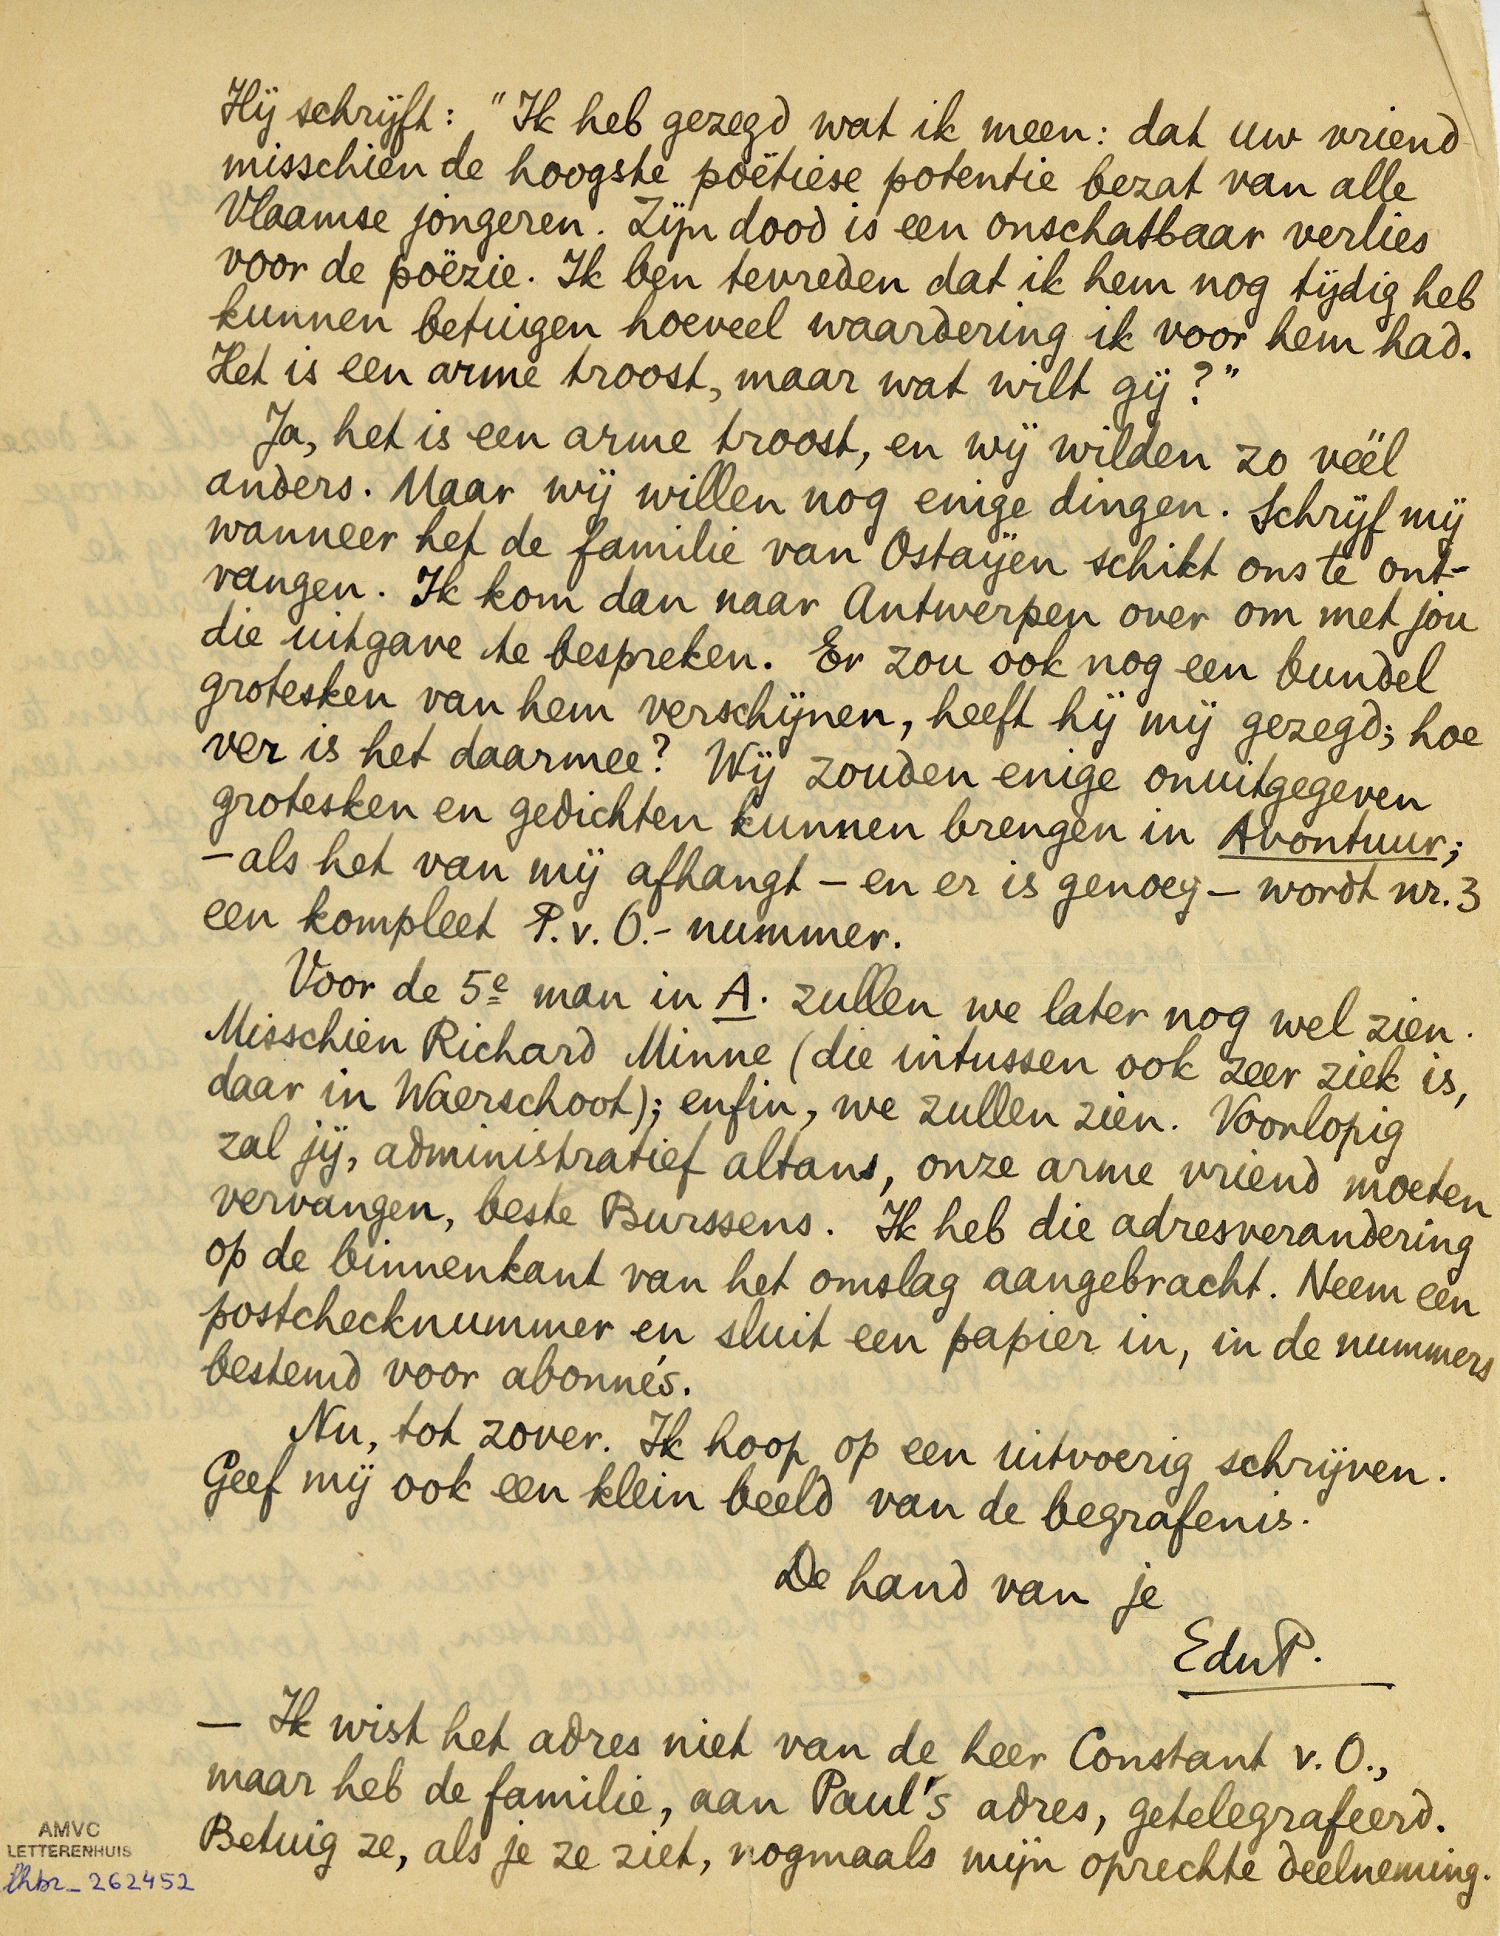 Hij schrijft: "Ik heb gezegd wat ik meen: dat uw vriend
misschien de hoogste poëtiese potentie bezat van alle
Vlaamse jongeren. Zijn dood is een onschatbaar verlies
voor de poëzie. Ik ben tevreden dat ik hem nog tijdig heb
kunnen betuigen hoeveel waardering ik voor hem had.
Het is een arme troost, maar wat wilt gij?"
Ja, het is een arme troost, en wij wilden zo véél
anders. Maar wij willen nog enige dingen. Schrijf mij
wanneer het de familie van Ostaijen schikt ons te ont-
vangen. Ik kom dan naar Antwerpen over om met jou
die uitgave te bespreken. Er zou ook nog een bundel
grotesken van hem verschijnen, heeft hij mij gezegd; hoe
ver is het daarmee? Wij zouden enige onuitgegeven
grotesken en gedichten kunnen brengen in Avontuur;
– als het van mij afhangt – en er is genoeg – wordt nr. 3
een kompleet P.v.O.- nummer.
Voor de 5e man in A. zullen we later nog wel zien.
Misschien Richard Minne (die intussen ook zeer ziek is,
daar in Waerschoot); enfin, we zullen zien. Voorlopig
zal jij, administratief altans, onze arme vriend moeten
vervangen, beste Burssens. Ik heb die adresverandering
op de binnenkant van het omslag aangebracht. Neem een
postchecknummer en sluit een papier in, in de nummers
bestemd voor abonnés.
Nu, tot zover. Ik hoop op een uitvoerig schrijven.
Geef mij ook een klein beeld van de begrafenis.
De hand van je
EduP.
— Ik wist het adres niet van de heer Constant v. O.,
maar heb de familie, aan Paul's adres, getelegrafeerd.
Betuig ze, als je ze ziet, nogmaals mijn oprechte deelneming.
AMVC
LETTERENHUIS
lhbr_262452